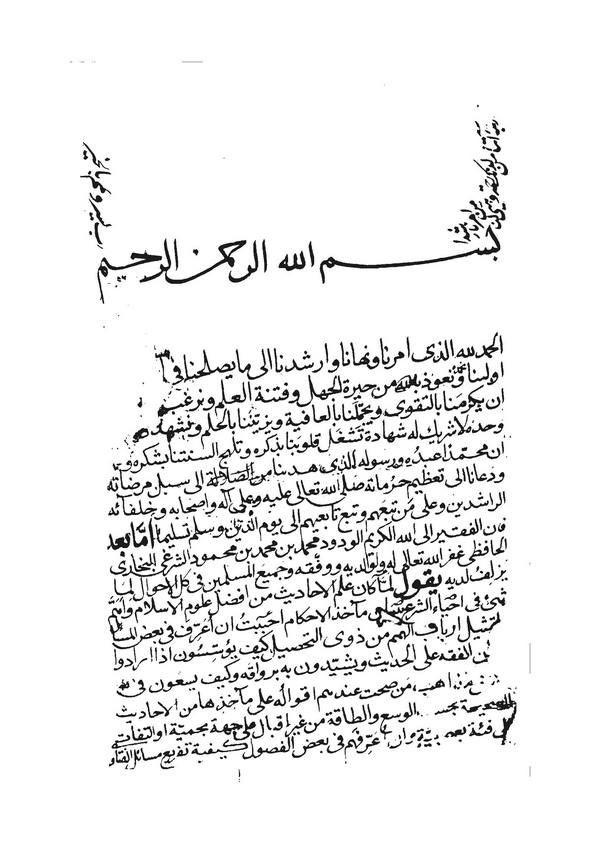 بسم الله الرحمن الرحيم
الحمد لله الذى امرنا ونهانا وارشدنا الى ما يصلحنا فى
اولينا ونعوذ بالله من حيرة الجهل وفتنة العلم ونرغب
ان يكرمنا بالتقوى ويجملنا بالعافية ويزيننا بالحلم ونشهد
وحده لا شريك له شهادة تشغل قلوبنا بذكره وتلهج السنتنا بشكره و
ان محمدا عبده ورسوله الذى هدينا من الضلالة الى سبل مرضاته
ودعانا الى تعظيم حرماته صلى الله تعالى عليه وعلى آله واصحابه وخلفائه
الراشدين وعلى من تبعهم وتبع تابعيهم الى يوم الدين وسلم تسليما اما بعد
فان الفقير الى الله الكريم الودود محمد بن محمد بن محمود الشرغى البخارى
الحافظى غفر الله تعالى له ولوالديه ووفقه وجميع المسلمين فى كل الاحوال لما
يزلف لديه يقول لما كان علم الاحاديث من افضل علوم الاسلام واتم
شئ فى احياء الشرع مآخذ الاحكام احببت ان اعرف فى بعض
لمثيل ارباب الهمم من ذوى التحصيل كيف يؤسسون اذا ارادوا
الفقه على الحديث ويشيدون به رواقه وكيف يسعون فى
من صحت عندهم اقواله على مآخذها من الاحاديث
الصحيحة الوسع والطاقة من غير اقبال على جهة بحمية او التفات
فئة وان اعرفهم فى بعض الفصول كيفية تفريع مسائل الفتاو